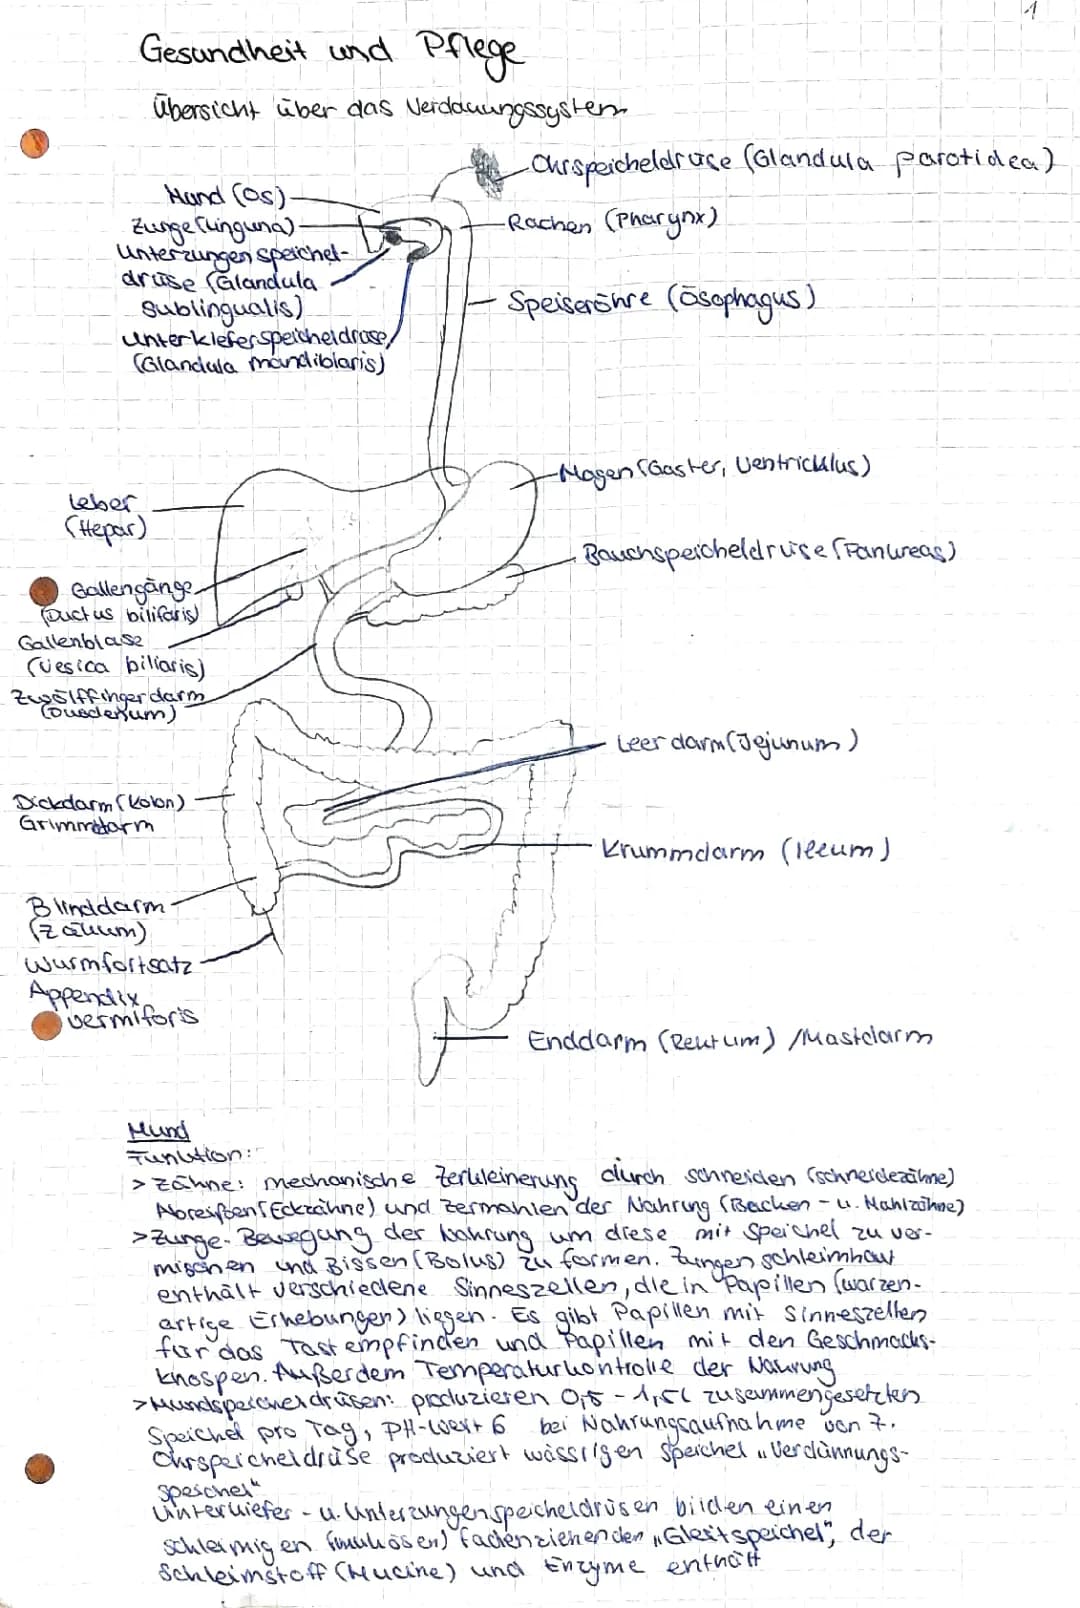 1
Gesundheit und Pflege
Übersicht über das Verdauungssystem
Ohrspeicheldrüse (Glandula parotidea)
Mund (Os)
Zunge (Linguna)
Rachen (Pharynx)
Unterzungenspeichel-
drüse (Glandula
sublingualis)
Speiseröhre (Ösophagus)
Unterkieferspeicheldrüse
(Glandula mandiblaris)
Magen (Gaster, Ventrickulus)
Leber
(Hepar)
Bauchspeicheldrüse (Pankreas)
Gallengänge
(Ductus bilifaris)
Gallenblase
(Vesica biliaris)
Zwölffingerdarm
(Duodenum)
Leerdarm (Jejunum)
Dickdarm (Kolon)
Grimmdarm
Krummdarm (Ileum)
Blinddarm
(Zäkum)
Wurmfortsatz
Appendix
vermiforis
Enddarm (Rektum) /Mastdarm
Mund
Funktion:
> Zähne: mechanische Zerkleinerung durch schneiden (schneidezähne)
Abreißen (Eckzähne) und zermahlen der Nahrung (Backen - u. Mahlzähne)
> Zunge - Bewegung der Nahrung um diese mit Speichel zu ver-
mischen und Bissen (Bolus) zu formen. Zungenschleimhaut
enthält verschiedene Sinneszellen, die in Papillen (warzen-
artige Erhebungen) liegen. Es gibt Papillen mit Sinneszellen
für das Tastempfinden und Papillen mit den Geschmacks-
knospen. Außerdem Temperaturkontrolle der Nahrung
> Mundspeicheldrüsen: produzieren 0,5 - 1,5l zusammengesetzten
Speichel pro Tag, PH-Wert 6 bei Nahrungsaufnahme von 7.
Ohrspeicheldrüse produziert wässrigen Speichel „Verdünnungs-
speichel"
Unterkiefer - u. Unterzungenspeicheldrüsen bilden einen
schleimigen (mukösen) fadenziehenden „Gleitspeichel", der
Schleimstoff (Mucine) und Enzyme enthält